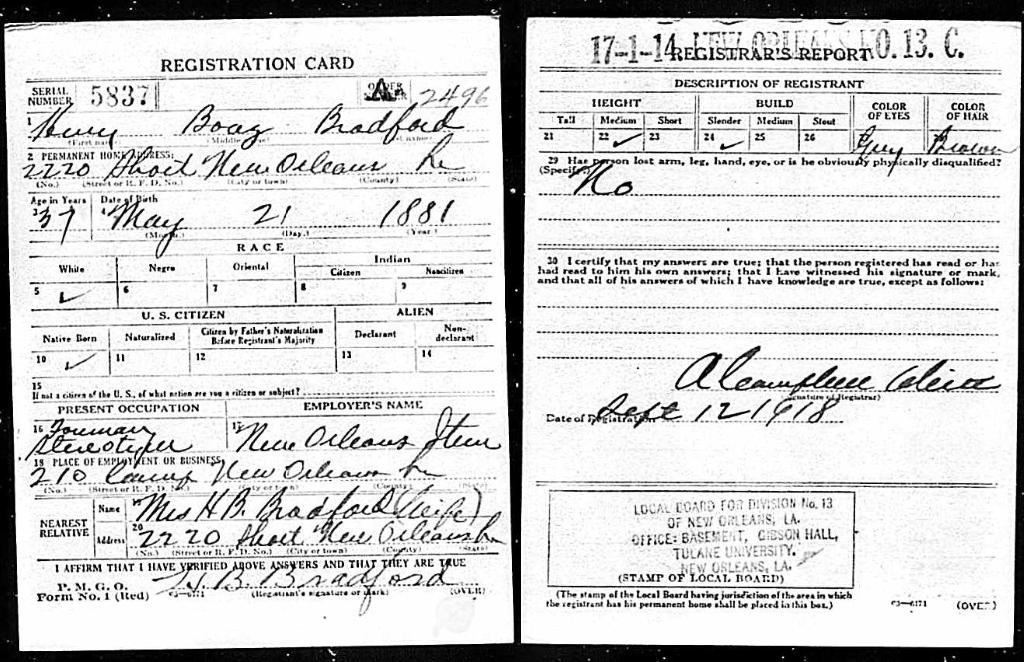 REGISTRATION CARD
SERIAL NUMBER 5837 ORDER NUMBER A 2496
1 Henry Boaz Bradford
(First name) (Middle name) (Last name)
2 PERMANENT HOME ADDRESS:
2220 Short New Orleans La
(No.) (Street or R. F. D. No.) (City or town) (County) (State)
Age in Years Date of Birth
3 37 4 May 21 1881
(Month.) (Day.) (Year.)
RACE
White Negro Oriental Indian
Citizen Noncitizen
5 ✓ 6 7 8 9
U. S. CITIZEN ALIEN
Native Born Naturalized Citizen by Father's Naturalization Before Registrant's Majority Declarant Non-declarant
10 ✓ 11 12 13 14
15
If not a citizen of the U. S., of what nation are you a citizen or subject?
PRESENT OCCUPATION EMPLOYER'S NAME
16 Foreman Stereotyper 17 New Orleans Item
18 PLACE OF EMPLOYMENT OR BUSINESS:
210 Camp New Orleans La
(No.) (Street or R. F. D. No.) (City or town) (County) (State)
NEAREST RELATIVE Name 19 Mrs H B. Bradford (Wife)
Address 20 2220 Short New Orleans La
(No.) (Street or R. F. D. No.) (City or town) (County) (State)
I AFFIRM THAT I HAVE VERIFIED ABOVE ANSWERS AND THAT THEY ARE TRUE
P. M. G. O.
Form No. 1 (Red) 03—6171 H. B. Bradford
(Registrant's signature or mark) (OVER)
17-1-14 NEW ORLEANS NO. 13. C.
REGISTRAR'S REPORT
DESCRIPTION OF REGISTRANT
HEIGHT BUILD COLOR OF EYES COLOR OF HAIR
Tall Medium Short Slender Medium Stout
21 22 ✓ 23 24 ✓ 25 26 Grey Brown
29 Has person lost arm, leg, hand, eye, or is he obviously physically disqualified?
(Specify.) No
30 I certify that my answers are true; that the person registered has read or has
had read to him his own answers; that I have witnessed his signature or mark,
and that all of his answers of which I have knowledge are true, except as follows:
(Signature of Registrar)
Date of Registration Sept 12 1918
LOCAL BOARD FOR DIVISION No. 13
OF NEW ORLEANS, LA.
OFFICE: BASEMENT, GIBSON HALL,
TULANE UNIVERSITY.
NEW ORLEANS, LA.
(STAMP OF LOCAL BOARD)
(The stamp of the Local Board having jurisdiction of the area in which
the registrant has his permanent home shall be placed in this box.)
03—6171 (OVER)